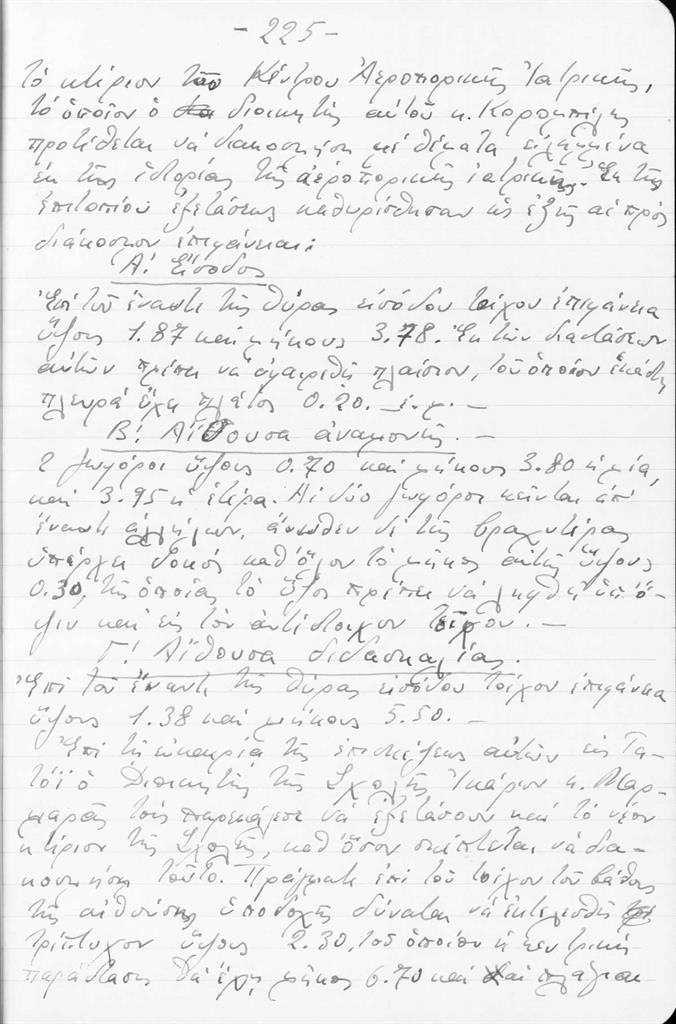 - 225 -
τὸ κτίριον τοῦ Κέντρου Ἀεροπορικῆς Ἰατρικῆς,
τὸ ὁποῖον ὁ διοικητὴς αὐτοῦ κ. Κορομπίλης
προτίθεται νὰ διακοσμήσῃ μὲ θέματα εἰλημμένα
ἐκ τῆς ἱστορίας τῆς ἀεροπορικῆς ἰατρικῆς. Ἐκ τῆς
ἐπιτοπίου ἐξετάσεως καθωρίσθησαν ὡς ἑξῆς αἱ πρὸς
διάκοσμον ἐπιφάνειαι:
Α! Εἴσοδος
Ἐπὶ τοῦ ἔναντι τῆς θύρας εἰσόδου τοίχου ἐπιφάνεια
ὕψους 1.87 καὶ μήκους 3.78. Ἐκ τῶν διαστάσεων
αὐτῶν πρέπει νὰ ἀφαιρεθῇ πλαίσιον, τοῦ ὁποίου ἑκάστη
πλευρὰ ἔχει πλάτος 0.20. –
Β! Αἴθουσα ἀναμονῆς. –
2 ζωφόροι ὕψους 0.70 καὶ μήκους 3.80 ἡ μία,
καὶ 3.95 ἡ ἑτέρα. Αἱ δύο ζωφόροι κεῖνται ἀπέ
έναντι ἀλλήλων, ἄνωθεν δὲ τῆς βραχυτέρας
ὑπάρχει δοκὸς καθ' ὅλον τὸ μῆκος αὐτῆς ὕψους
0.30, τῆς ὁποίας τὸ ὕψος πρέπει νὰ ληφθῇ ὑπ' ὄ-
ψιν καὶ εἰς τὸν ἀντίστοιχον τοῖχον. –
Γ! Αἴθουσα διδασκαλίας.
Ἐπὶ τοῦ ἔναντι τῆς θύρας εἰσόδου τοίχου ἐπιφάνεια
ὕψους 1.38 καὶ μήκους 5.50. –
Ἐπὶ τῇ εὐκαιρίᾳ τῆς ἐπισκέψεως αὐτῶν εἰς Τα-
τόϊ ὁ Διοικητὴς τῆς Σχολῆς Ἰκάρων κ. Μαρ-
μαρᾶς τοὺς παρεκάλεσε νὰ ἐξετάσουν καὶ τὸ νέον
κτίριον τῆς Σχολῆς, καθ' ὅσον σκέπτεται νὰ δια-
κοσμήσῃ τοῦτο. Πράγματι ἐπὶ τοῦ τοίχου τοῦ βάθους
τῆς αἰθούσης ὑποδοχῆς δύναται νὰ ἐκτελεσθῇ
τρίπτυχον ὕψους 2.30, τοῦ ὁποίου ἡ κεντρικὴ
παράστασις θὰ ἔχῃ μῆκος 6.70 καὶ αἱ πλάγιαι